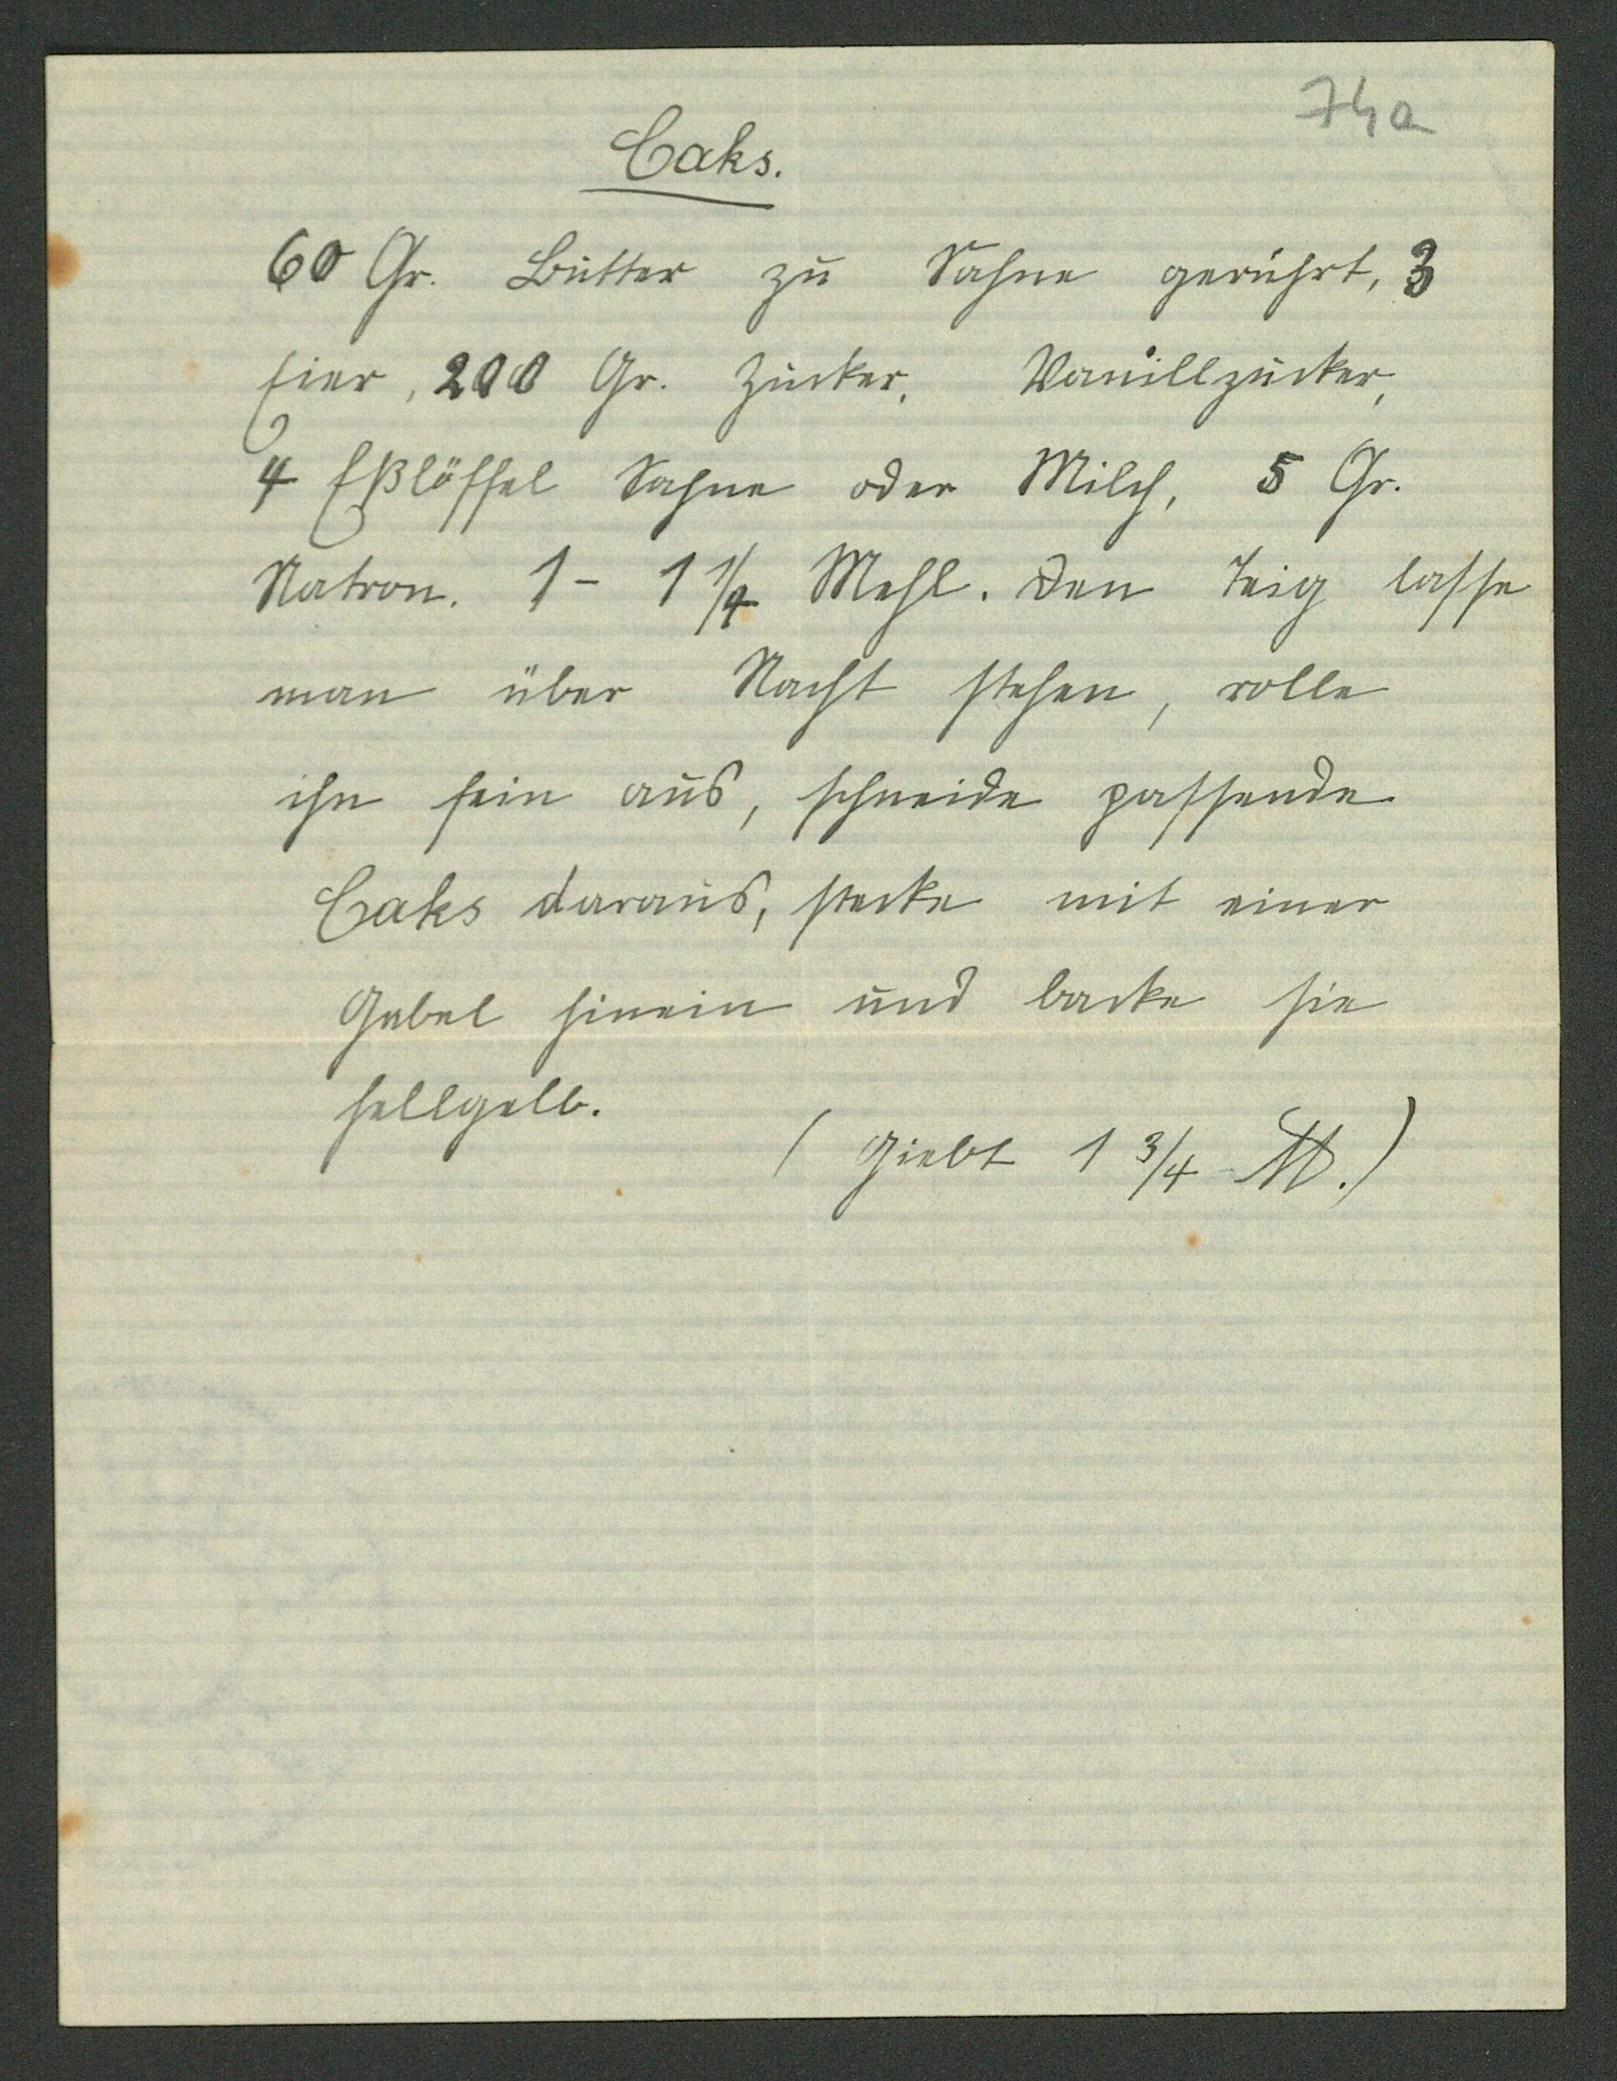 74a
Caks.
60 Gr. Butter zu Sahne gerührt, 3
Eier, 200 Gr. Zucker, Vanillzucker,
4 Eßlöffel Sahne oder Milch, 5 Gr.
Natron. 1 - 1 1/4 Mehl. Den Teig lasse
man über Nacht stehen, rolle
ihn fein aus, schneide passende
Caks daraus, stecke mit einer
Gabel hinein und backe sie
hellgelb.
(Giebt 1 3/4 ℔.)